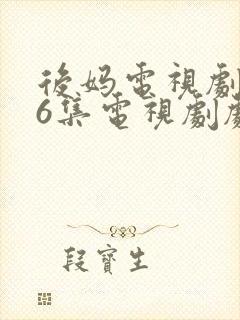 後妈電視劇
6集電視劇劇
段寶生